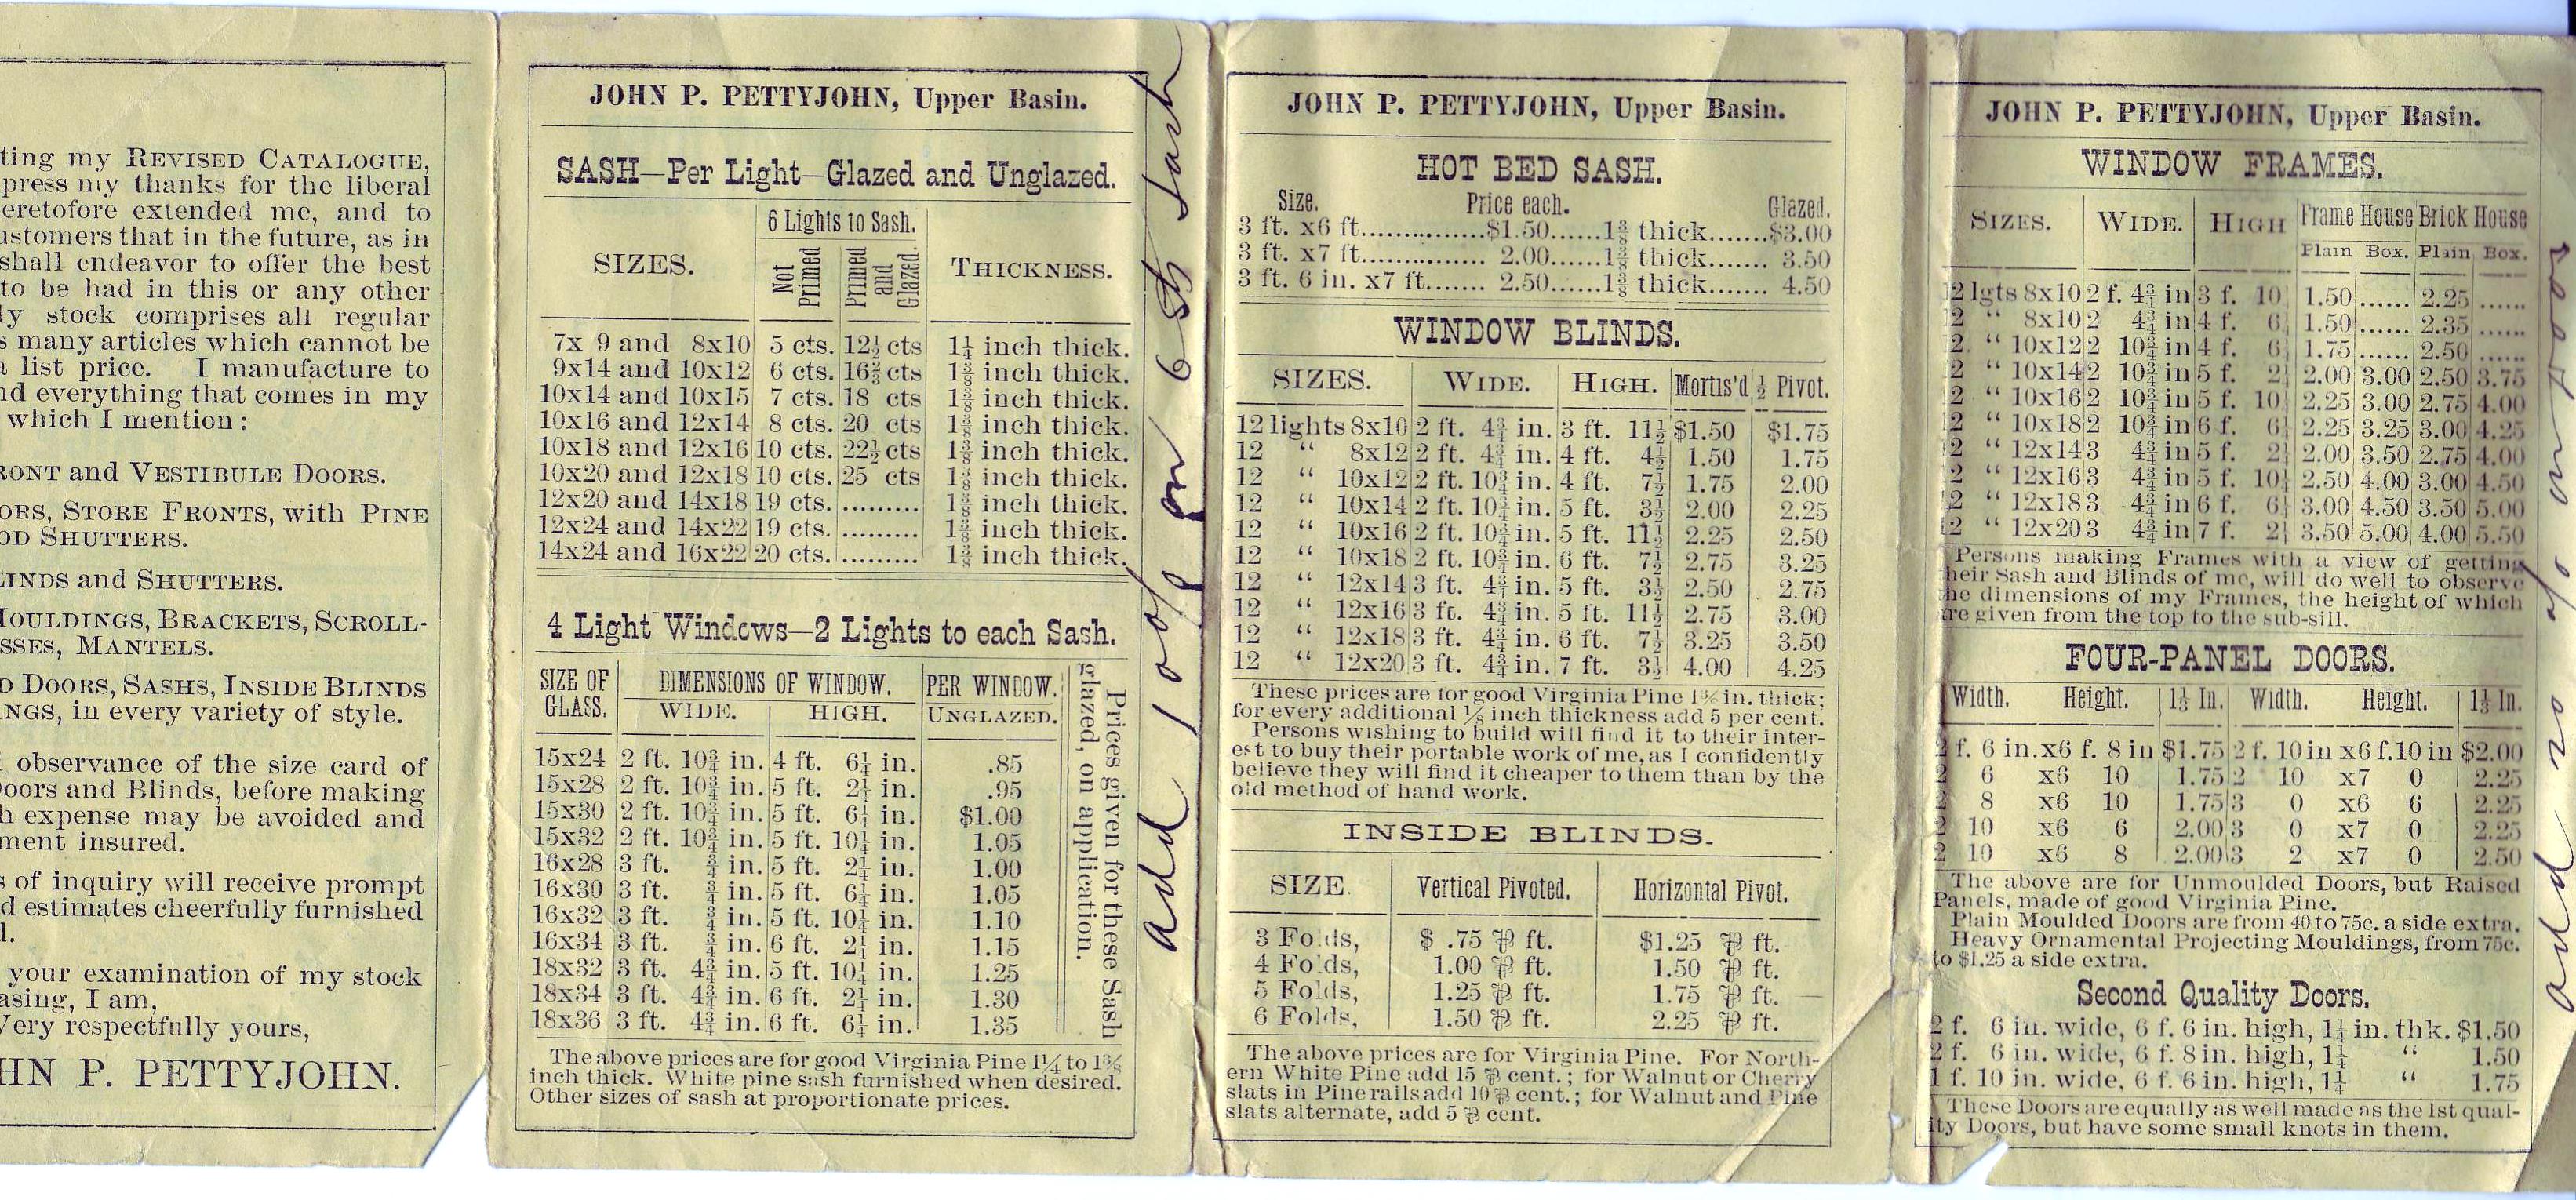 ting my REVISED CATALOGUE,
press my thanks for the liberal
eretofore extended me, and to
ustomers that in the future, as in
shall endeavor to offer the best
to be had in this or any other
ly stock comprises all regular
s many articles which cannot be
a list price. I manufacture to
nd everything that comes in my
which I mention:
RONT and VESTIBULE DOORS.
ORS, STORE FRONTS, with PINE
OD SHUTTERS.
LINDS and SHUTTERS.
MOULDINGS, BRACKETS, SCROLL-
SSES, MANTELS.
D DOORS, SASHS, INSIDE BLINDS
NGS, in every variety of style.
observance of the size card of
Doors and Blinds, before making
h expense may be avoided and
ment insured.
s of inquiry will receive prompt
d estimates cheerfully furnished
d.
your examination of my stock
asing, I am,
Very respectfully yours,
HN P. PETTYJOHN.
JOHN P. PETTYJOHN, Upper Basin.
SASH—Per Light—Glazed and Unglazed.
SIZES. 6 Lights to Sash. THICKNESS.
Not Primed Primed and Glazed.
7x 9 and 8x10 5 cts. 12½ cts 1¼ inch thick.
9x14 and 10x12 6 cts. 16⅔ cts 1⅜ inch thick.
10x14 and 10x15 7 cts. 18 cts 1⅜ inch thick.
10x16 and 12x14 8 cts. 20 cts 1⅜ inch thick.
10x18 and 12x16 10 cts. 22½ cts 1⅜ inch thick.
10x20 and 12x18 10 cts. 25 cts 1⅜ inch thick.
12x20 and 14x18 19 cts. ......... 1⅜ inch thick.
12x24 and 14x22 19 cts. ......... 1⅜ inch thick.
14x24 and 16x22 20 cts. ......... 1⅜ inch thick.
4 Light Windows—2 Lights to each Sash.
SIZE OF GLASS. DIMENSIONS OF WINDOW. PER WINDOW.
WIDE. HIGH. UNGLAZED.
15x24 2 ft. 10¾ in. 4 ft. 6¼ in. .85
15x28 2 ft. 10¾ in. 5 ft. 2¼ in. .95
15x30 2 ft. 10¾ in. 5 ft. 6¼ in. $1.00
15x32 2 ft. 10¾ in. 5 ft. 10¼ in. 1.05
16x28 3 ft. ¾ in. 5 ft. 2¼ in. 1.00
16x30 3 ft. ¾ in. 5 ft. 6¼ in. 1.05
16x32 3 ft. ¾ in. 5 ft. 10¼ in. 1.10
16x34 3 ft. ¾ in. 6 ft. 2¼ in. 1.15
18x32 3 ft. 4¾ in. 5 ft. 10¼ in. 1.25
18x34 3 ft. 4¾ in. 6 ft. 2¼ in. 1.30
18x36 3 ft. 4¾ in. 6 ft. 6¼ in. 1.35
Prices given for these Sash
glazed, on application.
The above prices are for good Virginia Pine 1¼ to 1⅜
inch thick. White pine sash furnished when desired.
Other sizes of sash at proportionate prices.
add 10% on 6 Sash
JOHN P. PETTYJOHN, Upper Basin.
HOT BED SASH.
Size. Price each. Glazed.
3 ft. x6 ft...............$1.50......1⅜ thick.......$3.00
3 ft. x7 ft............... 2.00......1⅜ thick....... 3.50
3 ft. 6 in. x7 ft....... 2.50......1⅜ thick....... 4.50
WINDOW BLINDS.
SIZES. WIDE. HIGH. Mortis'd ½ Pivot.
12 lights 8x10 2 ft. 4¾ in. 3 ft. 11½ $1.50 $1.75
12 “ 8x12 2 ft. 4¾ in. 4 ft. 4½ 1.50 1.75
12 “ 10x12 2 ft. 10¾ in. 4 ft. 7½ 1.75 2.00
12 “ 10x14 2 ft. 10¾ in. 5 ft. 3½ 2.00 2.25
12 “ 10x16 2 ft. 10¾ in. 5 ft. 11½ 2.25 2.50
12 “ 10x18 2 ft. 10¾ in. 6 ft. 7½ 2.75 3.25
12 “ 12x14 3 ft. 4¾ in. 5 ft. 3½ 2.50 2.75
12 “ 12x16 3 ft. 4¾ in. 5 ft. 11½ 2.75 3.00
12 “ 12x18 3 ft. 4¾ in. 6 ft. 7½ 3.25 3.50
12 “ 12x20 3 ft. 4¾ in. 7 ft. 3½ 4.00 4.25
These prices are for good Virginia Pine 1⅜ in. thick;
for every additional ⅛ inch thickness add 5 per cent.
Persons wishing to build will find it to their inter-
est to buy their portable work of me, as I confidently
believe they will find it cheaper to them than by the
old method of hand work.
INSIDE BLINDS.
SIZE. Vertical Pivoted. Horizontal Pivot.
3 Folds, $ .75 ⅌ ft. $1.25 ⅌ ft.
4 Folds, 1.00 ⅌ ft. 1.50 ⅌ ft.
5 Folds, 1.25 ⅌ ft. 1.75 ⅌ ft.
6 Folds, 1.50 ⅌ ft. 2.25 ⅌ ft.
The above prices are for Virginia Pine. For North-
ern White Pine add 15 ⅌ cent.; for Walnut or Cherry
slats in Pine rails add 10 ⅌ cent.; for Walnut and Pine
slats alternate, add 5 ⅌ cent.
JOHN P. PETTYJOHN, Upper Basin.
WINDOW FRAMES.
SIZES. WIDE. HIGH Frame House Brick House
Plain Box. Plain Box.
12 lgts 8x10 2 f. 4¾ in 3 f. 10 1.50 ...... 2.25 ......
2 “ 8x10 2 4¾ in 4 f. 6¼ 1.50 ...... 2.35 ......
2 “ 10x12 2 10¾ in 4 f. 6¼ 1.75 ...... 2.50 ......
2 “ 10x14 2 10¾ in 5 f. 2¼ 2.00 3.00 2.50 3.75
2 “ 10x16 2 10¾ in 5 f. 10¼ 2.25 3.00 2.75 4.00
2 “ 10x18 2 10¾ in 6 f. 6¼ 2.25 3.25 3.00 4.25
2 “ 12x14 3 4¾ in 5 f. 2¼ 2.00 3.50 2.75 4.00
2 “ 12x16 3 4¾ in 5 f. 10¼ 2.50 4.00 3.00 4.50
2 “ 12x18 3 4¾ in 6 f. 6¼ 3.00 4.50 3.50 5.00
12 “ 12x20 3 4¾ in 7 f. 2¼ 3.50 5.00 4.00 5.50
Persons making Frames with a view of getting
heir Sash and Blinds of me, will do well to observe
he dimensions of my Frames, the height of which
are given from the top to the sub-sill.
FOUR-PANEL DOORS.
Width. Height. 1¼ In. Width. Height. 1¼ In.
2 f. 6 in. x6 f. 8 in $1.75 2 f. 10 in x6 f. 10 in $2.00
2 6 x6 10 1.75 2 10 x7 0 2.25
2 8 x6 10 1.75 3 0 x6 6 2.25
2 10 x6 6 2.00 3 0 x7 0 2.25
2 10 x6 8 2.00 3 2 x7 0 2.50
The above are for Unmoulded Doors, but Raised
Panels, made of good Virginia Pine.
Plain Moulded Doors are from 40 to 75c. a side extra.
Heavy Ornamental Projecting Mouldings, from 75c.
to $1.25 a side extra.
Second Quality Doors.
2 f. 6 in. wide, 6 f. 6 in. high, 1¼ in. thk. $1.50
2 f. 6 in. wide, 6 f. 8 in. high, 1¼ “ 1.50
1 f. 10 in. wide, 6 f. 6 in. high, 1¼ “ 1.75
These Doors are equally as well made as the 1st qual-
ity Doors, but have some small knots in them.
add